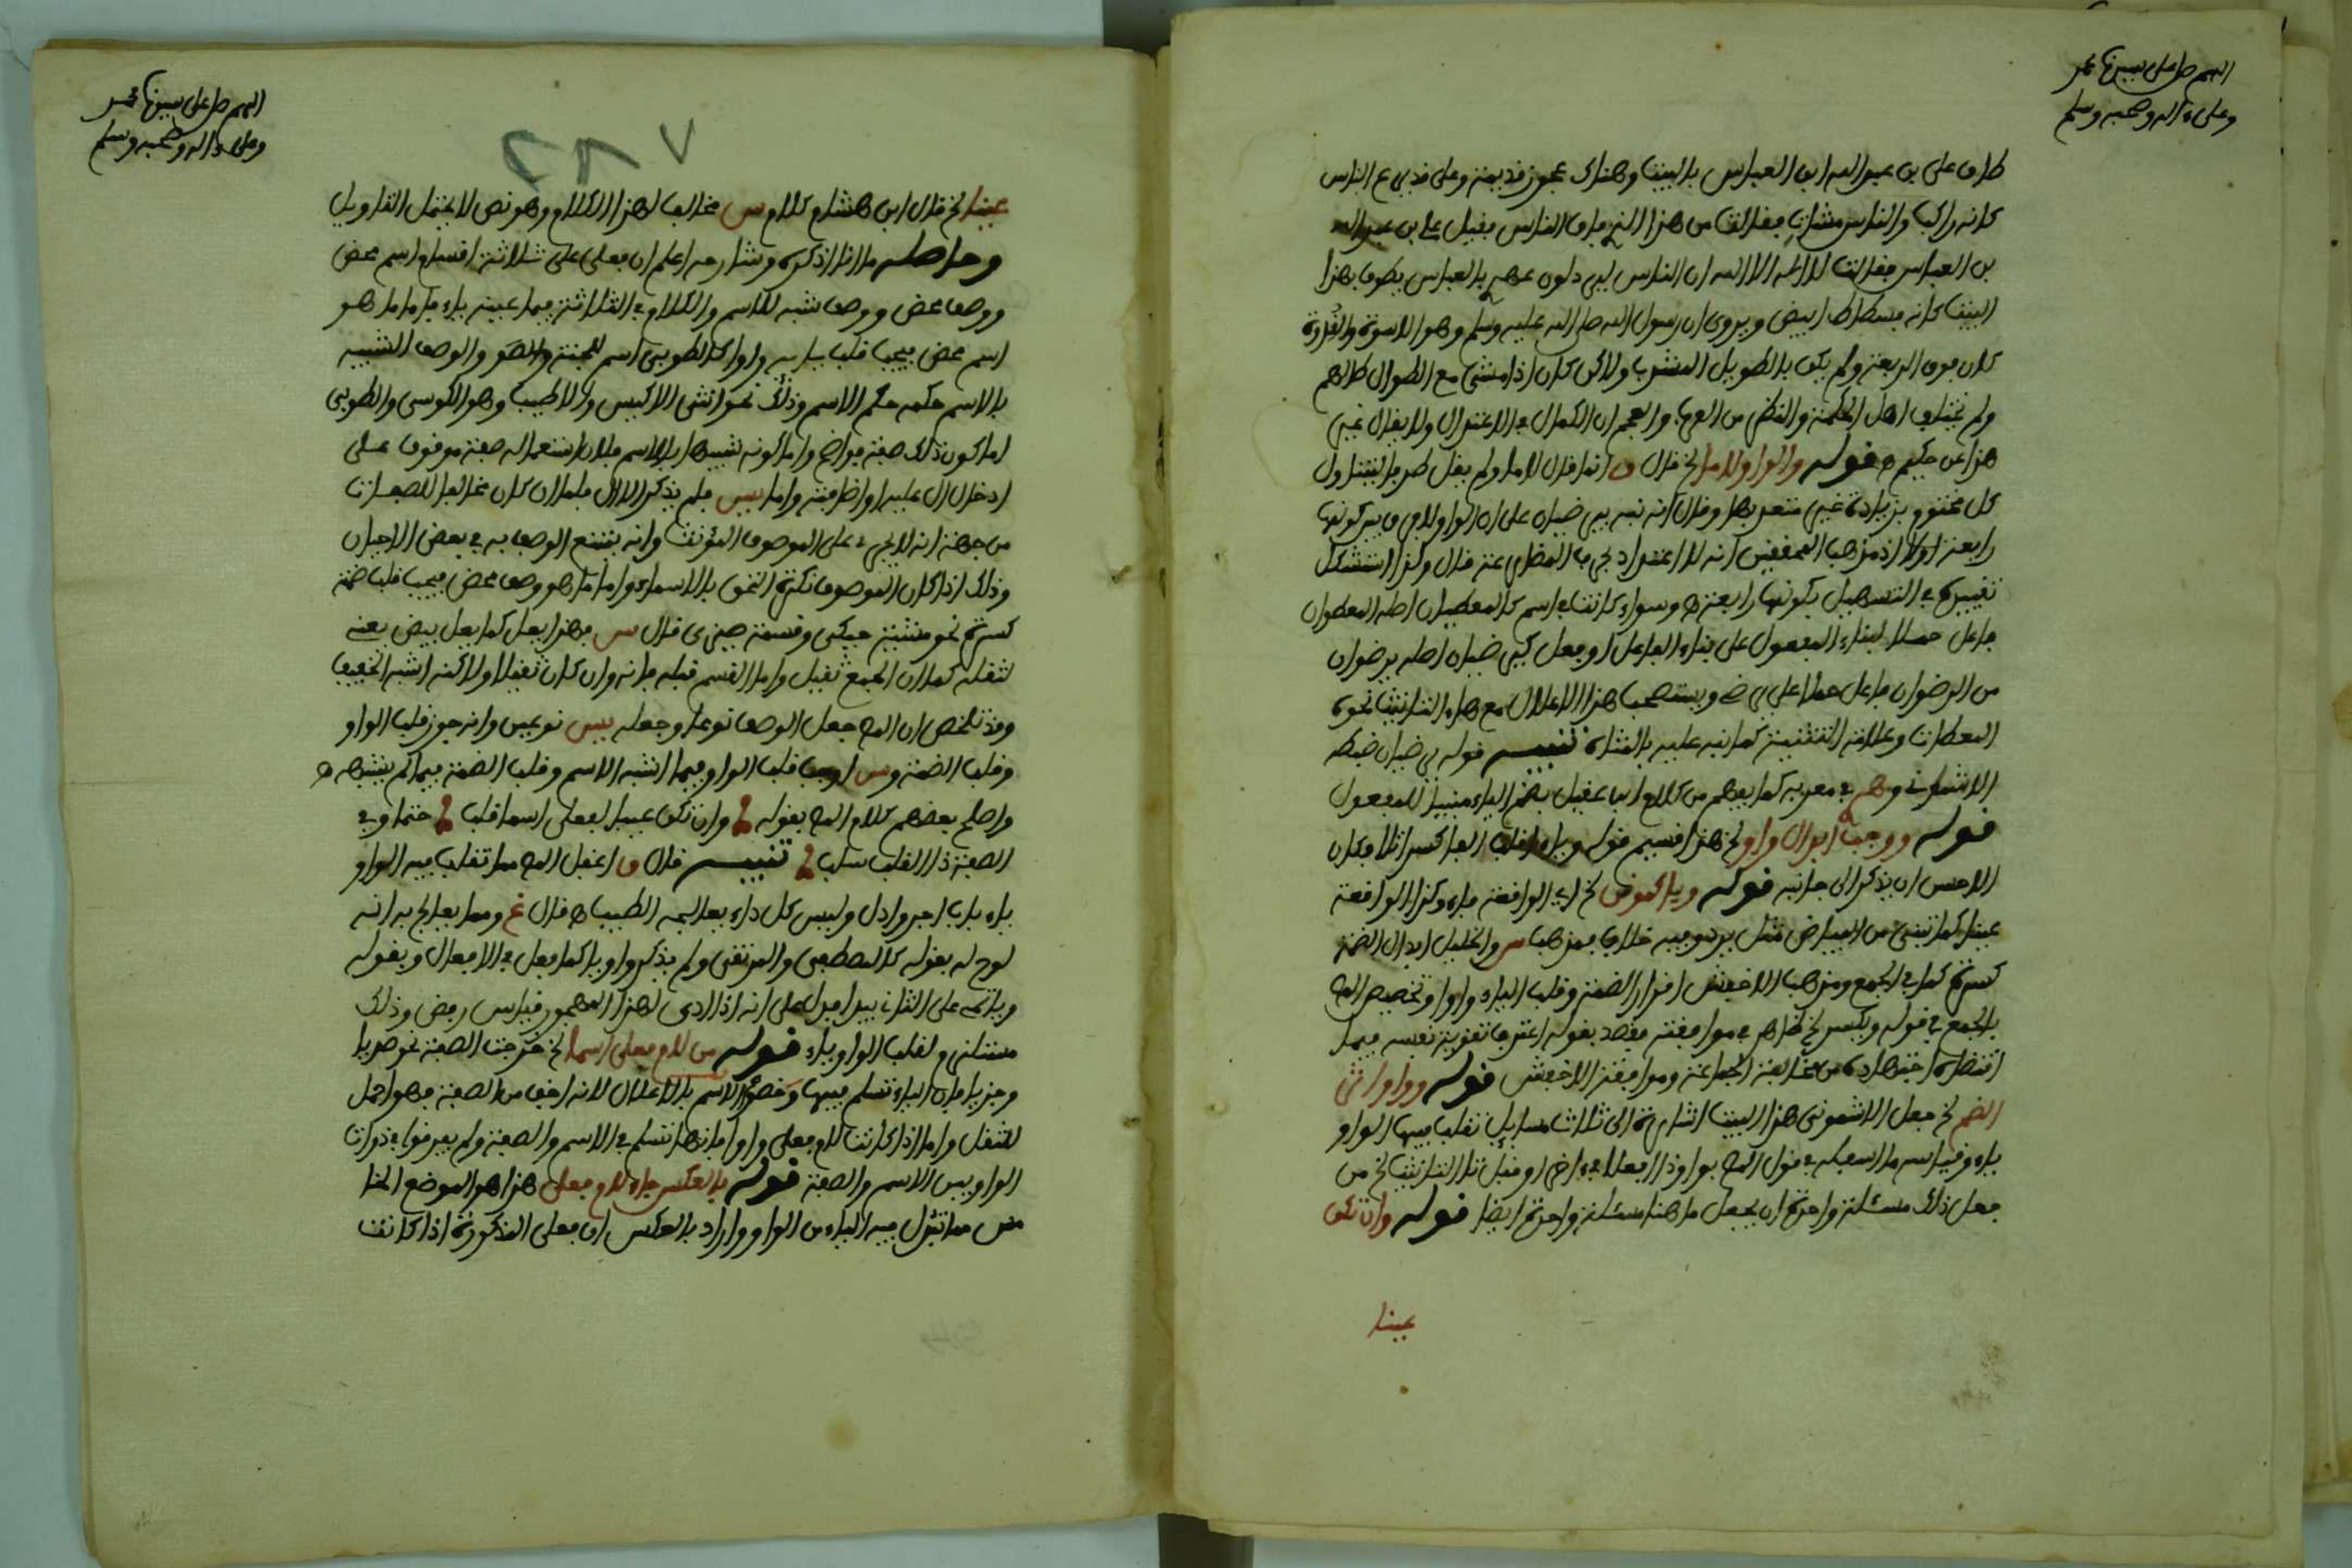 اللهم صل على سيدنا محمد
وعلى ءاله وصحبه وسلم
طاف على بن عبد الله ابن العباس بالبيت وهناك عجوز قديمة وعلى قد فرع الناس
كانه راكب والناس مشاة فقالت من هذا الذي فاق الناس فقيل على بن عبد الله
بن العباس فقالت لا اله الا الله ان الناس ليرذلون عهدي بالعباس يطوف بهذا
البيت كانه فسطاط ابيض ويروى ان رسول الله صلى الله عليه وسلم وهو الاسوة والقدوة
كان فوق الربعة ولم يكن بالطويل المشذب ولاكن كان اذا مشى مع الطوال طالهم
ولم يختلف اهل الحكمة والنظر من العرب والعجم ان الكمال في الاعتدال ولا يقال غير
هذا عن حكيم ه قوله والواو لاما الخ قال ق انما قال لاما ولم يقل طرفا ليتناول
كل مختوم بزيادة غير معتد بها وقال انه نبه بيرضيان على ان الواو لام في كونها
رابعة اولا اذ مذهب المحققين انه لا اعتداد بحرف المضارعة قال وكذا استشكل
تقييده في التسهيل بكونها رابعة ه وسواء كانت في اسم كالمعطيان اصله المعطوان
فاعل حملا لبناء المفعول على بناء الفاعل او فعل كيرضيان اصله يرضوان
من الرضوان فاعل حملا على رضي ويستصحب هذا الاعلال مع هاء التانيث نحو
المعطاة وعلامة التثنية كما نبه عليه بالمثال تنبيه قوله يرضيان ضبطه
الاشموني وهم في معربه كما يفهم من كلام ابن عقيل بضم الياء مبنيا للمفعول
قوله ووجب ابدال واو الخ هذا قسيم قوله وياء اقلب الفا كسرا تلا فكان
الاحسن ان يذكر الى جانبه قوله ويا كموقن الخ اي الواقعة فاء وكذا الواقعة
عينا كما تبنى من البياض مثل برد وفيه خلاف فمذهب س والخليل ابدال الضمة
كسرة كما في الجمع ومذهب الاخفش اقرار الضمة وقلب الياء واوا وتخصيص المص
بالجمع في قوله ويكسر الخ ظاهر في موافقته فقصد بقوله اعترف تقوية نفسه فيما
اقتضاه اجتهاده من مخالفة الجماعة وموافقة الاخفش قوله وواوا اثر
الضم الخ جعل الاشموني هذا البيت اشارة الى ثلاث مسايل تقلب فيها الواو
ياء وقياسه ما اسبكه في قول المص بواو ذا افعلا في ءاخر او قبل تا التانيث الخ من
جعل ذلك مسئلة واحدة ان يجعل ما هنا مسئلة واحدة ايضا قوله وان تكن
عينا
اللهم صل على سيدنا محمد
وعلى ءاله وصحبه وسلم
عينا الخ قال ابن هشام كلام س مخالف لهذا الكلام وهو نص لا يحتمل التاويل
وحاصله ما اذكره وشارحه اعلم ان فعلى على ثلاثة اقسام اسم محض
ووصف محض ووصف شبه للاسم والكلام في الثلاثة فيما عينه ياء فاما ما هو
اسم محض فيجب قلب يايه واوا كالطوبى اسم للجنة والوصف الشبيه
بالاسم حكمه حكم الاسم وذلك نحو انثى الاكيس والاطيب وهو الكوسى والطوبى
اما كون ذلك صفة فواضح واما كونه شبيها بالاسم فلان استعماله صفة موقوف على
ادخال ال عليه او اضافته واما س فلم يذكر الا ال فلما ان كان مخالفا للصفات
من جهة انه لا يجري على الموصوف المؤنث وانه يمتنع الوصف به في بعض الاحيان
وذلك اذا كان الموصوف نكرة التحق بالاسماء واما ما هو وصف محض فيجب قلب ضمته
كسرة نحو مشية حيكى وقسمة ضيزى قال س فهذا بعل كما بعل بيض يعني
لثقله كما ان الجمع ثقيل واما القسم قبله فانه وان كان ثقيلا ولاكنه اشبه الخفيف
وقد تلخص ان المص جعل الوصف نوعا وجعله س نوعين وانه جوز قلب الواو
وقلب الضمة وس اوجب قلب الواو فيما اشبه الاسم وقلب الضمة فيما لم يشبهه ه
واصلح بعضهم كلام المص بقوله وان تكن عينا لفعلى اسما قلب حتما وفي
الصفة ذا القلب سلب تنبيه قال ق اغفل المص مما تقلب فيه الواو
ياء باب اجر وادل وليس كل داء يعالجه الطبيب ه قال غ ومما يعالج به انه
لوح له بقوله كالمصطفى والمرتقى ولم يذكر واويا كما فعل في الافعال وبقوله
على انه اذا ادى لهذا المهجور قياس رفض وذلك
مستلزم لقلب الواو ياء قوله من لام فعلى اسما الخ خرجت الصفة نحو صديا
وخزيا فان الياء تسلم فيها وخصوا الاسم بالاعلال لانه اخف من الصفة فهو احمل
للثقل واما اذا كانت لام فعلى واوا فانها تسلم في الاسم والصفة ولم يفرقوا في ذوات
الواو بين الاسم والصفة قوله بالعكس جاء لام فعلى هذا هو الموضع الخا
مس مما تبدل فيه الياء من الواو واراد بالعكس ان فعلى المذكورة اذا كانت